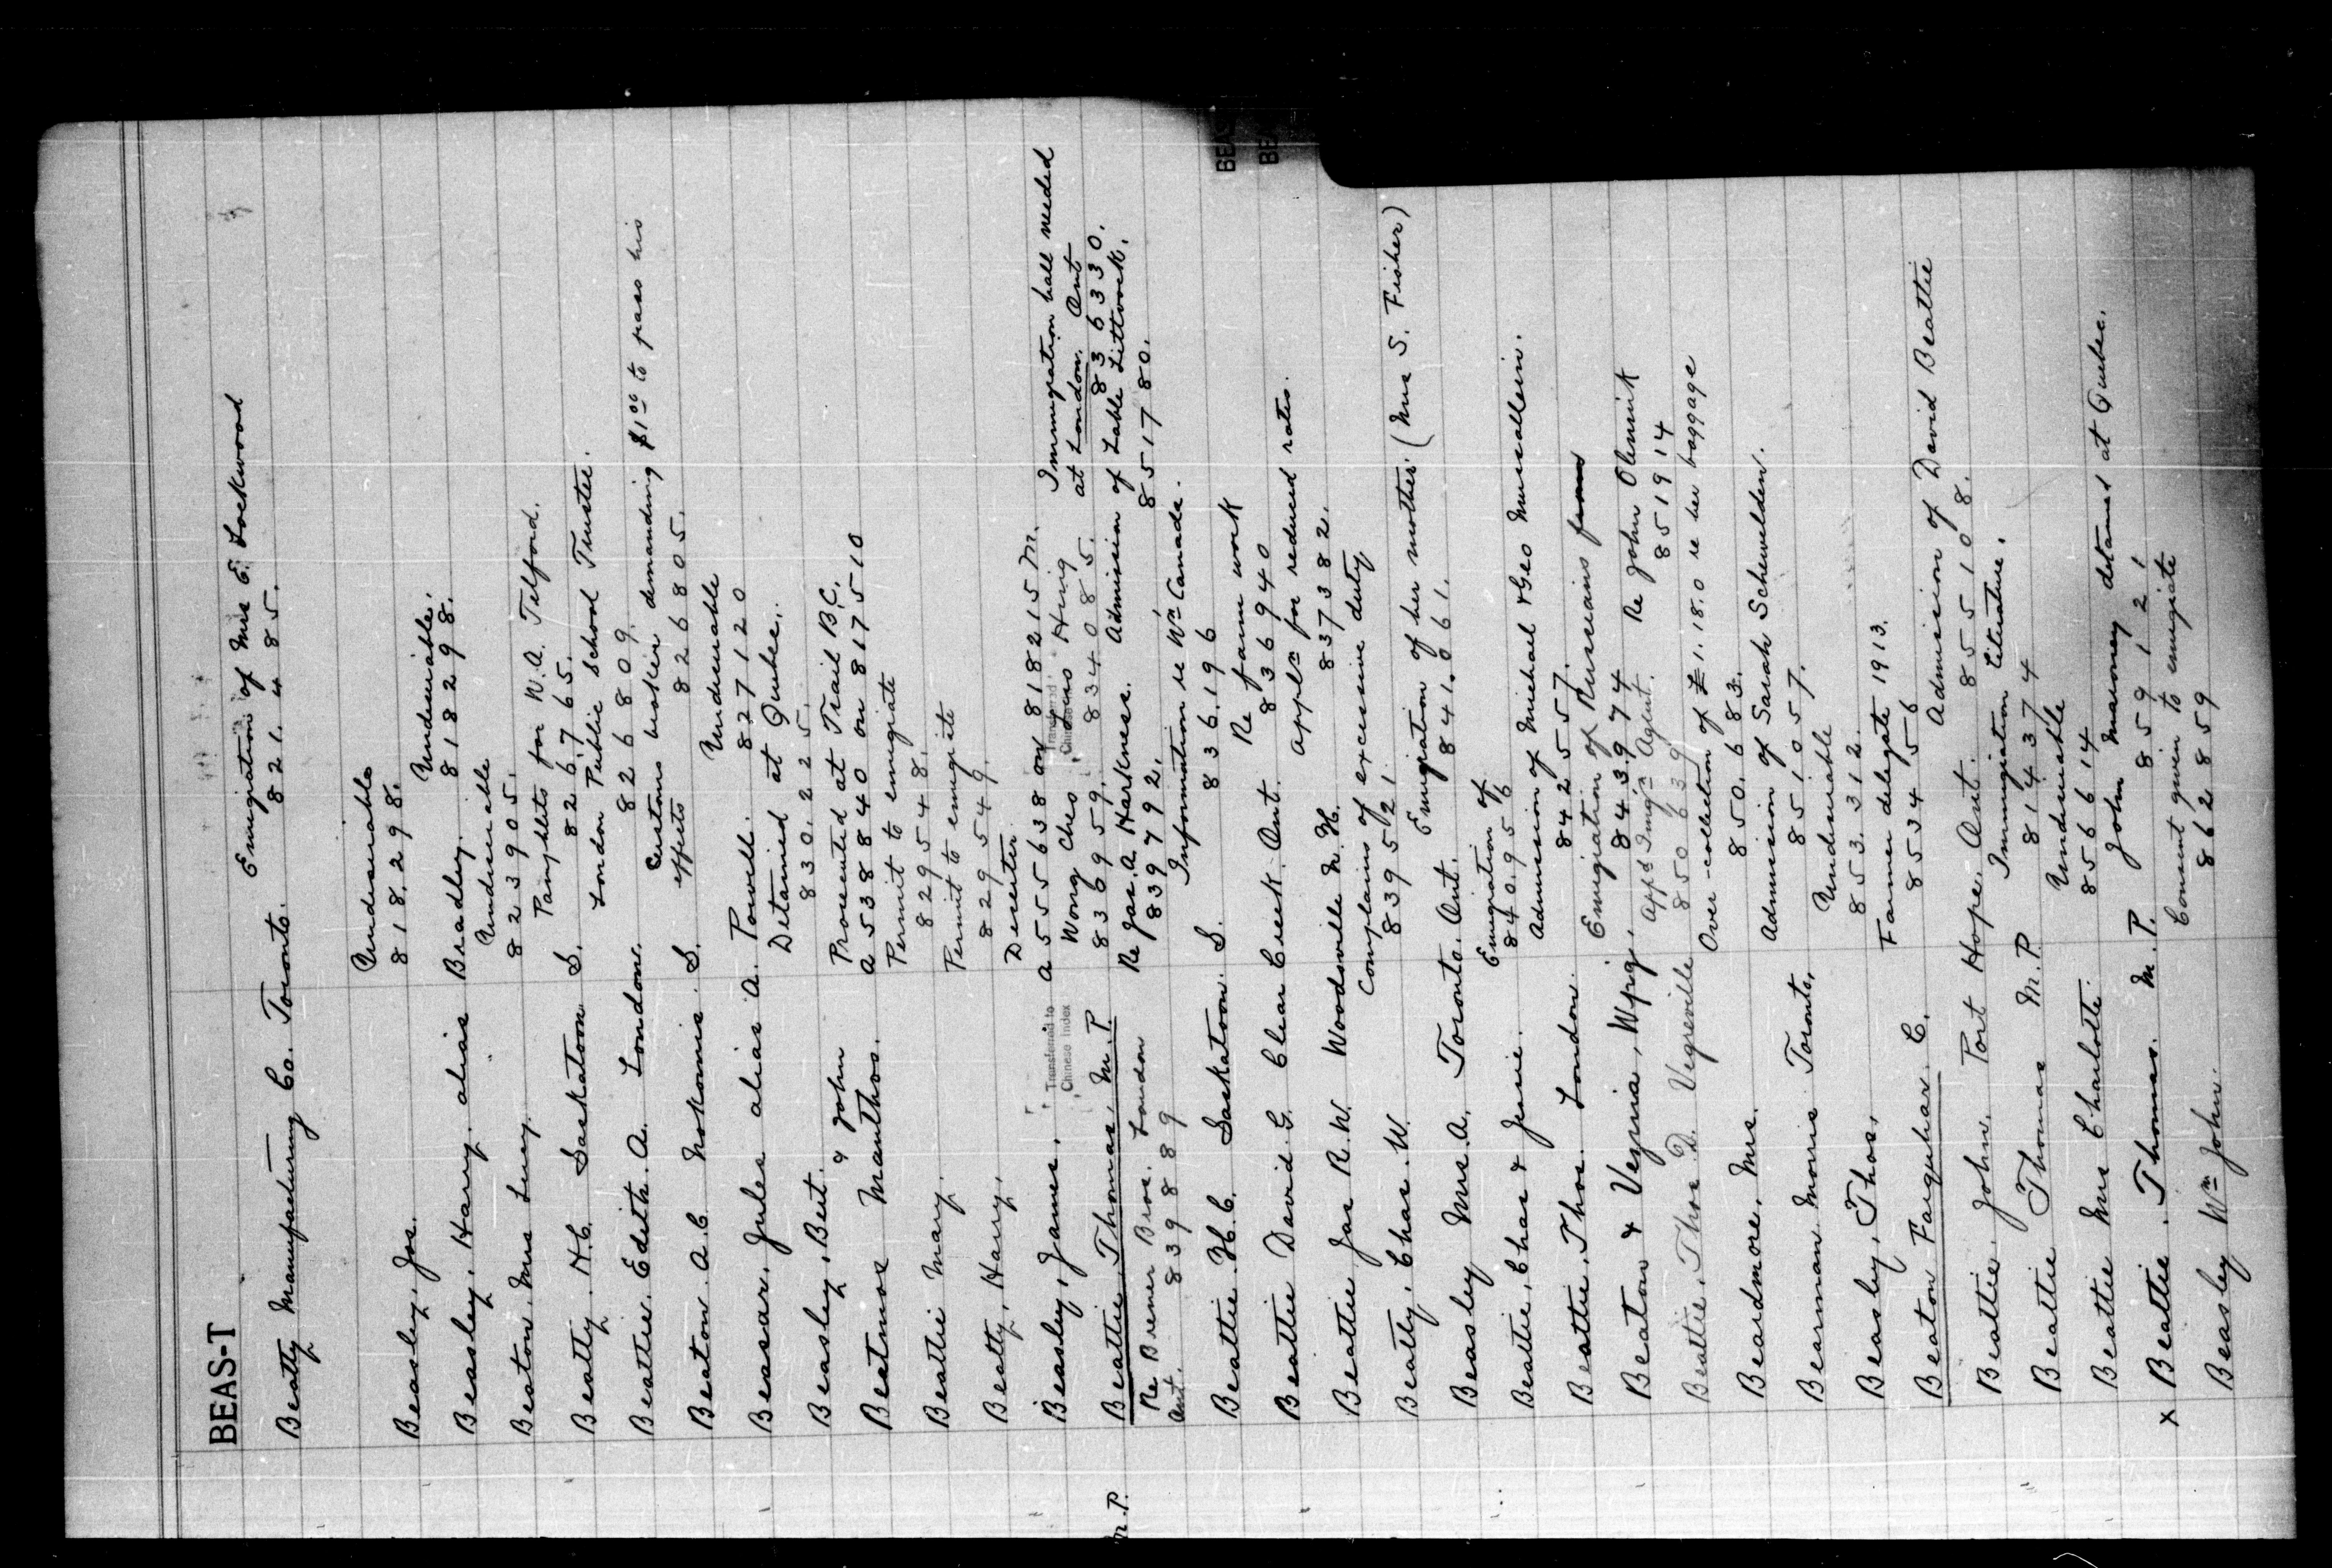 BEAS-T
Emigration of Mrs E. Lockwood
Beatty Manufacturing Co. Toronto. 821.485.
Undesirable
Beasley, Jos. 818.298.
Undesirable.
Beasley, Harry. alias Bradley. 818298.
Undesirable
Beaton. Mrs Lucy. 823905.
Pamphlets for W.A. Telford.
Beatty. H.C. Saskatoon S. 826765.
London Public School Trustee.
Beattie. Edith. A. London. 826809.
Customs broker demanding $1.00 to pass his
Beaton. A.C. Nokomis S. effects 826805.
Undesirable
Beasar. Jules alias A. Powell. 827120
Detained at Quebec.
Beasley, Bert. 830.225.
& John Prosecuted at Trail B.C.
Beatmos Manthos. A 538840 on 817510
Permit to emigrate
Beattie Mary. 829548.
Permit to emigrate
Beatty, Harry. 829549.
Deserter
Beasley, James. A 555638 on 818215 M.
Immigration hall needed
Transferred to
Chinese Index
Wong Ches Hing
at London, Ont
Beattie, Thomas, M.P. 836959. 834085. 836330.
Re Bremer Bros. London
Re Jas. A. Harkness. Admission of Lable Littvock.
Ont. 839889 839792. 851780.
M.P.
Information re Wm Canada.
Beattie. H.C. Saskatoon. S. 836.196
Re farm work
Beattie David G. Clear Creek. Ont. 836940
appln for reduced rates.
Beattie Jas R.W. Woodsville N.H. 837382.
Complains of excessive duty
Beatty, Chas. W. 839521.
Emigration of her mother. (Mrs S. Fisher)
Beasley Mrs A. Toronto. Ont. 841.061.
Emigration of
Beattie, Chas & Jessie. 840.956
Admission of Michal & Geo Musallein.
Beattie, Thos. London. 842557.
Emigration of Russians from
Re John Olennik
Beaton & Vezina, Wpig. 843974 851914
Appd Immgn Agent.
Beattie, Thos D. Vegreville 850639
Over-collection of £1.18.0 re her baggage
Beardmore, Mrs. 850.683.
Admission of Sarah Schewelden.
Bearman Morris Toronto. 851057.
Undesirable
Beasley, Thos. 853.312.
Farmer delegate 1913.
Beaton Farquhar. C. 853456
Admission of David Beattie
Beattie. John. Port Hope. Ont. 855108.
Immigration Literature.
Beattie Thomas M.P. 814374
Undesirable
Beattie Mrs Charlotte. 856614
John Maroney detained at Quebec.
x Beattie. Thomas. M.P. 859121
Consent given to emigrate
Beasley Wm John. 862859
BEAS
BEA